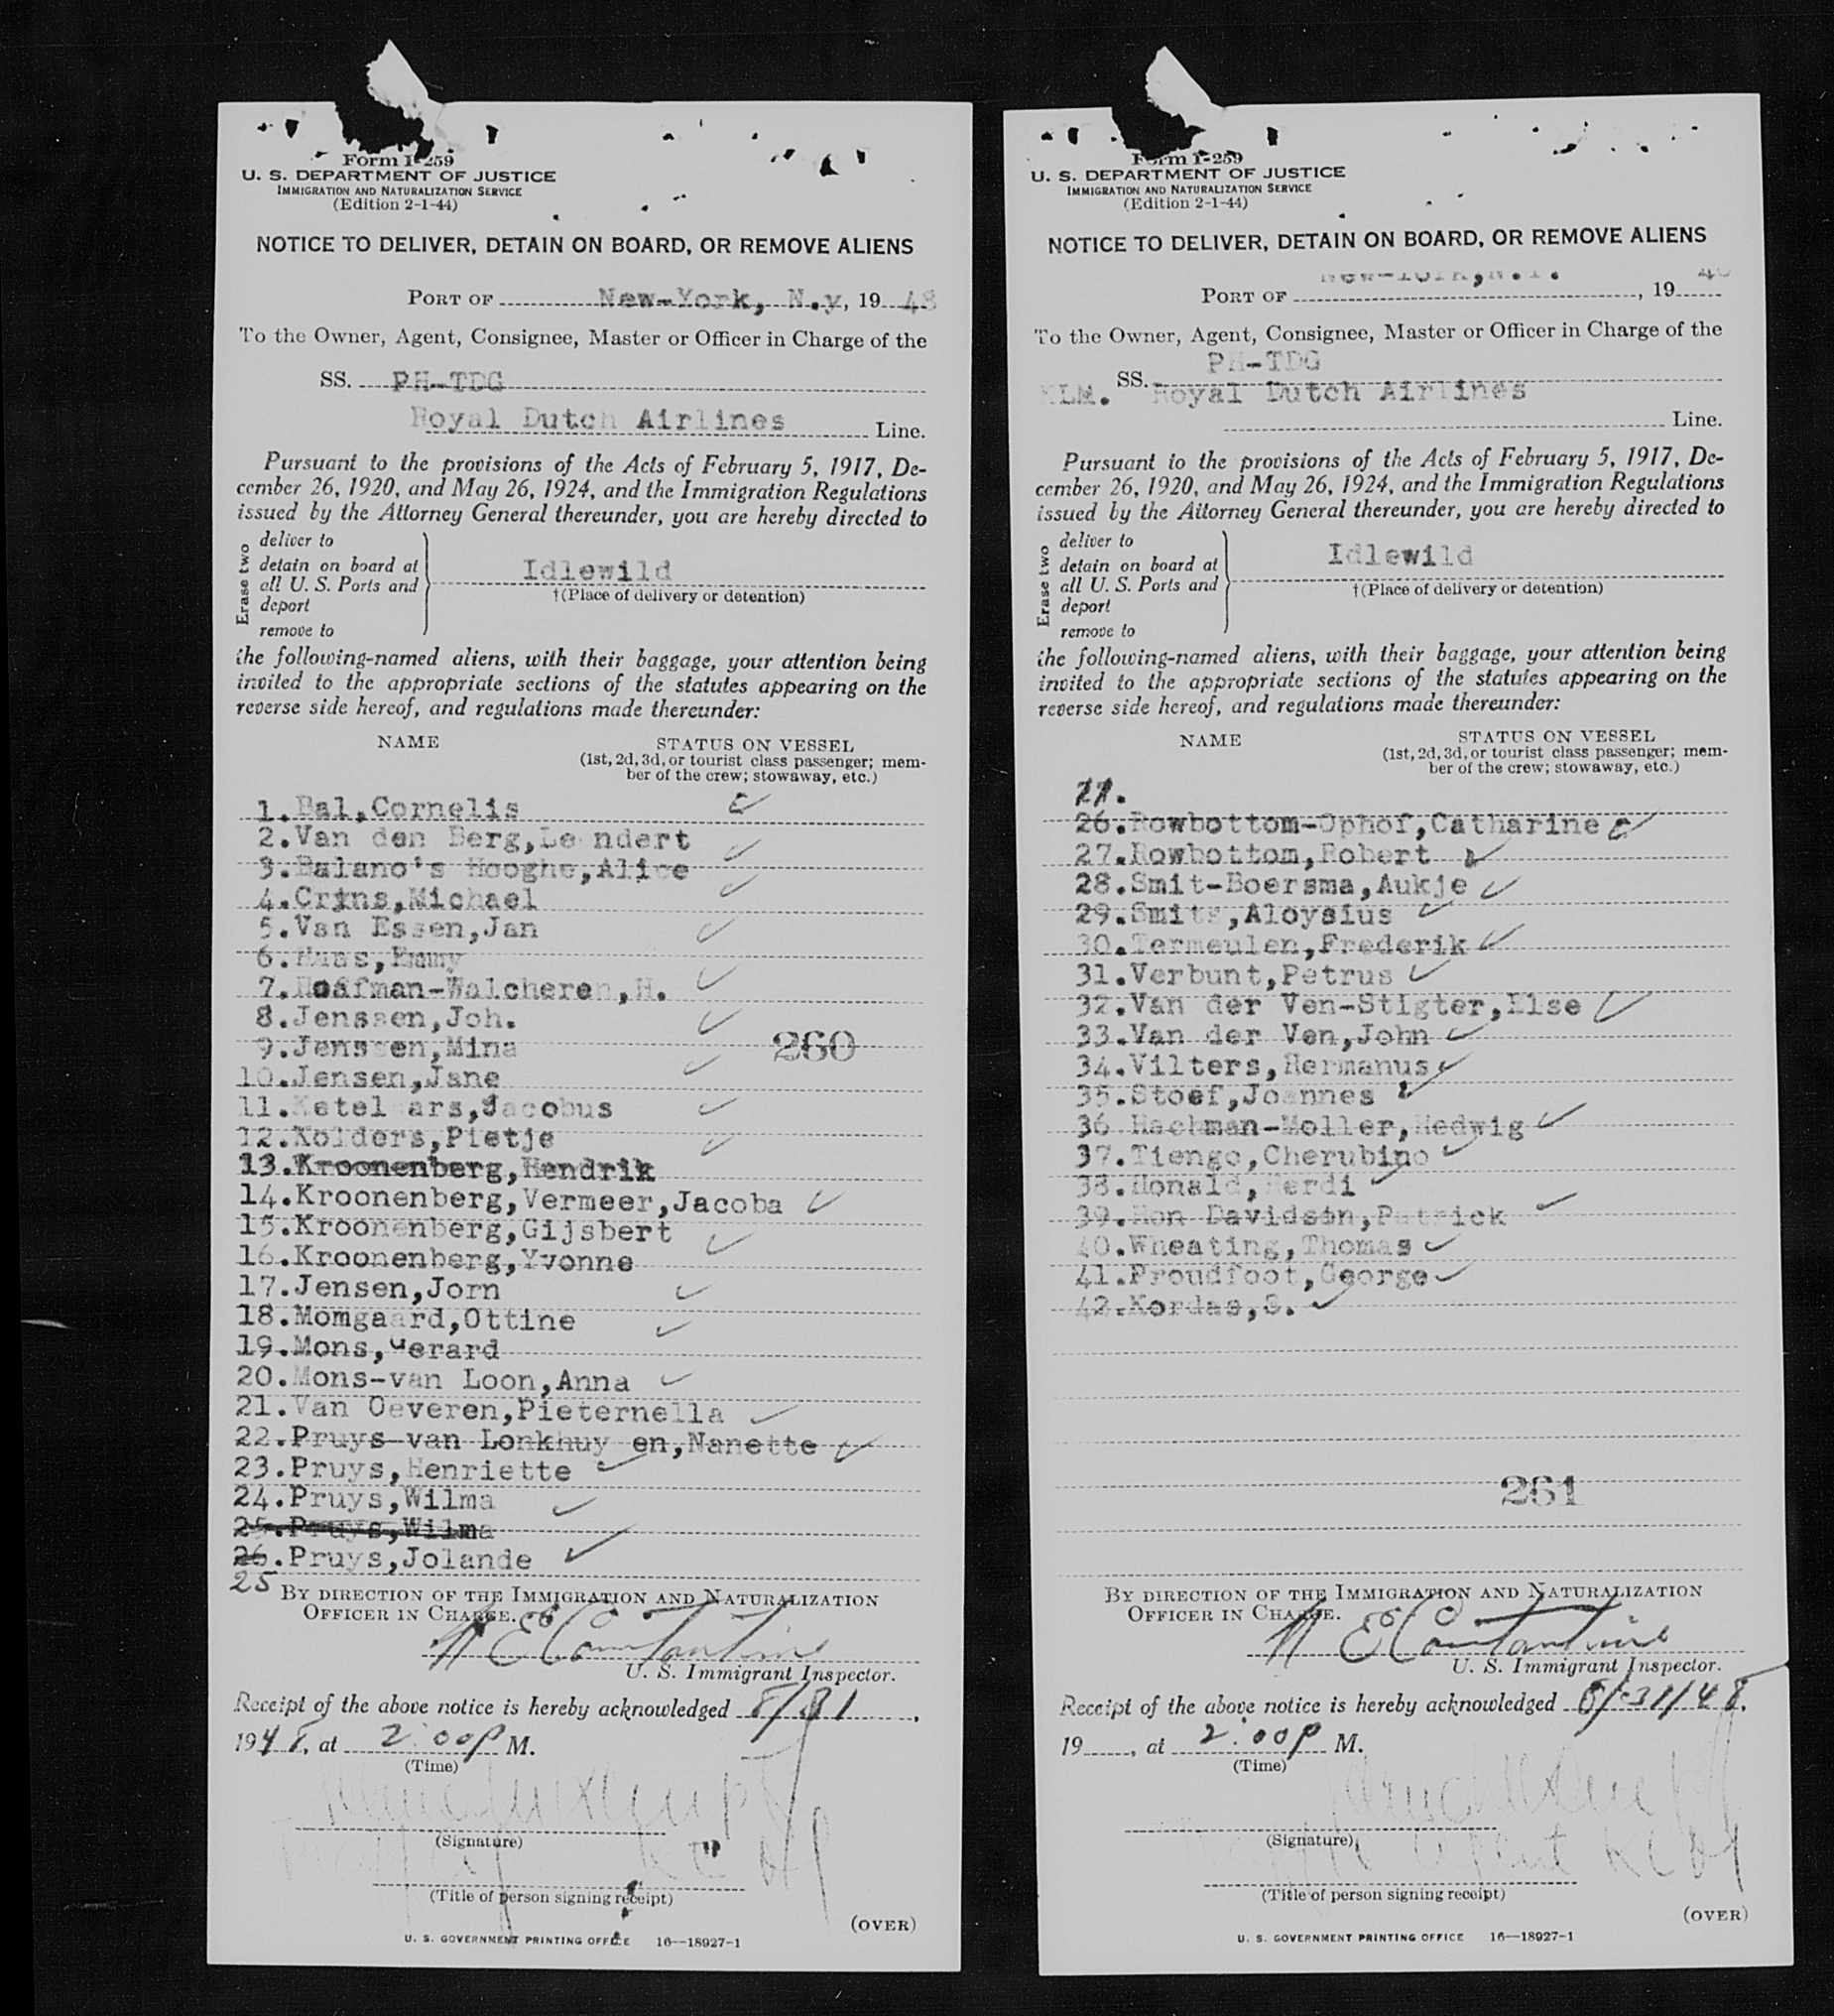 Form I-259
U. S. DEPARTMENT OF JUSTICE
IMMIGRATION AND NATURALIZATION SERVICE
(Edition 2-1-44)
NOTICE TO DELIVER, DETAIN ON BOARD, OR REMOVE ALIENS
PORT OF New-York, N.y, 19 48
To the Owner, Agent, Consignee, Master or Officer in Charge of the
SS. PH-TDG
Royal Dutch Airlines Line.
Pursuant to the provisions of the Acts of February 5, 1917, De-
cember 26, 1920, and May 26, 1924, and the Immigration Regulations
issued by the Attorney General thereunder, you are hereby directed to
Erase two
deliver to
detain on board at
all U. S. Ports and
deport
remove to
Idlewild
†(Place of delivery or detention)
the following-named aliens, with their baggage, your attention being
invited to the appropriate sections of the statutes appearing on the
reverse side hereof, and regulations made thereunder:
NAME STATUS ON VESSEL
(1st, 2d, 3d, or tourist class passenger; mem-
ber of the crew; stowaway, etc.)
1.Bal,Cornelis
2.Van den Berg,Le ndert
3.Balano's Hooghe,Alice
4.Crins,Michael
5.Van Essen,Jan
6. Emmy
7. H.
8.Jenssen,Joh.
9.Jenssen,Mina
260
10.Jensen,Jane
11.Ketel ars,Jacobus
12.Kolders,Pietje
13.Kroonenberg,Hendrik
14.Kroonenberg,Vermeer,Jacoba
15.Kroonenberg,Gijsbert
16.Kroonenberg,Yvonne
17.Jensen,Jorn
18.Momgaard,Ottine
19.Mons,Gerard
20.Mons-van Loon,Anna
21.Van Oeveren,Pieternella
22.Pruys-van Lonkhuy en,Nanette
23.Pruys,Henriette
24.Pruys,Wilma
25.Pruys,Wilma
26.Pruys,Jolande
25
BY DIRECTION OF THE IMMIGRATION AND NATURALIZATION
OFFICER IN CHARGE.
N E Constantine
U. S. Immigrant Inspector.
Receipt of the above notice is hereby acknowledged 8/31,
1948, at 2:00 P M.
(Time)
(Signature)
(Title of person signing receipt)
(OVER)
U. S. GOVERNMENT PRINTING OFFICE 16—18927-1
Form I-259
U. S. DEPARTMENT OF JUSTICE
IMMIGRATION AND NATURALIZATION SERVICE
(Edition 2-1-44)
NOTICE TO DELIVER, DETAIN ON BOARD, OR REMOVE ALIENS
New-York,N.Y. 48
PORT OF , 19
To the Owner, Agent, Consignee, Master or Officer in Charge of the
PH-TDG
SS.
KLM. Royal Dutch Airlines
Line.
Pursuant to the provisions of the Acts of February 5, 1917, De-
cember 26, 1920, and May 26, 1924, and the Immigration Regulations
issued by the Attorney General thereunder, you are hereby directed to
Erase two
deliver to
detain on board at
all U. S. Ports and
deport
remove to
Idlewild
†(Place of delivery or detention)
the following-named aliens, with their baggage, your attention being
invited to the appropriate sections of the statutes appearing on the
reverse side hereof, and regulations made thereunder:
NAME STATUS ON VESSEL
(1st, 2d, 3d, or tourist class passenger; mem-
ber of the crew; stowaway, etc.)
26.Rowbottom-Ophof,Catharine
27.Rowbottom,Robert
28.Smit-Boersma,Aukje
29.Smits,Aloysius
30.Termeulen,Frederik
31.Verbunt,Petrus
32.Van der Ven-Stigter,Else
33.Van der Ven,John
34.Vilters,Hermanus
35.Stoef,Joannes
36.Hachman-Moller,Hedwig
37.Tiengo,Cherubino
38.Monald, erdi
39.Mon Davidson,Patrick
40.Wheating,Thomas
41.Proudfoot,George
42.Kordas,S.
261
BY DIRECTION OF THE IMMIGRATION AND NATURALIZATION
OFFICER IN CHARGE.
N E Constantine
U. S. Immigrant Inspector.
Receipt of the above notice is hereby acknowledged 8/31/48,
19 , at 2:00 P M.
(Time)
(Signature)
(Title of person signing receipt)
(OVER)
U. S. GOVERNMENT PRINTING OFFICE 16—18927-1